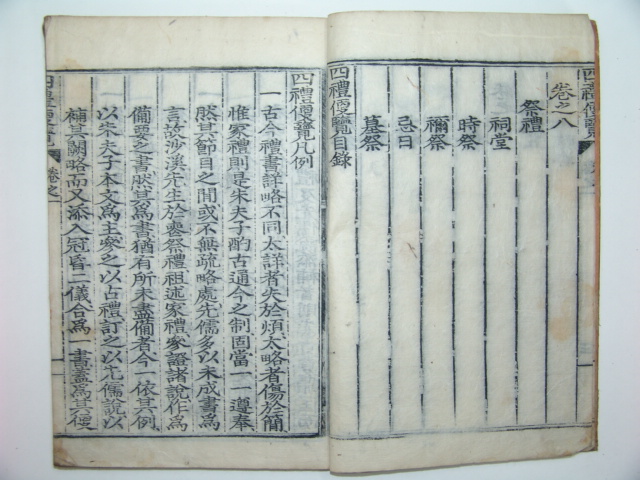 卷之八
祭禮
祠堂
時祭
禰祭
忌日
墓祭
四禮便覽目錄
四禮便覽凡例
一古今禮書詳略不同太詳者失於煩太略者傷於簡
惟家禮則是朱夫子酌古通今之制固當一一遵奉
然其節目之間或不無疏略處先儒多以未成書爲
言故沙溪先生於喪祭禮祖述家禮家證諸說作爲
備要之書然其爲書猶有所未盡備者今一依其例
以朱夫子本文爲主參之以古禮訂之以先儒說以
補其闕略而又添入冠昏二儀合爲一書蓋爲其便
四禮便覽
卷之一
四禮便覽